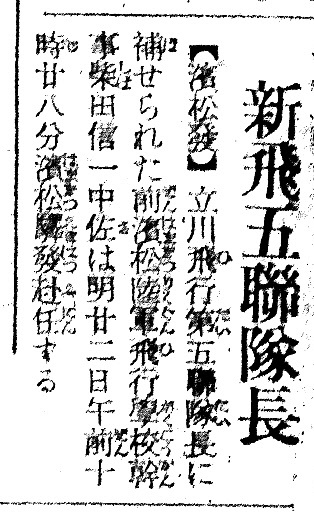 新飛五聯隊長
【濱松發】立川飛行第五聯隊長に
補せられた前濱松陸軍飛行學校幹
事柴田信一中佐は明廿二日午前十
時廿八分濱松驛發赴任する